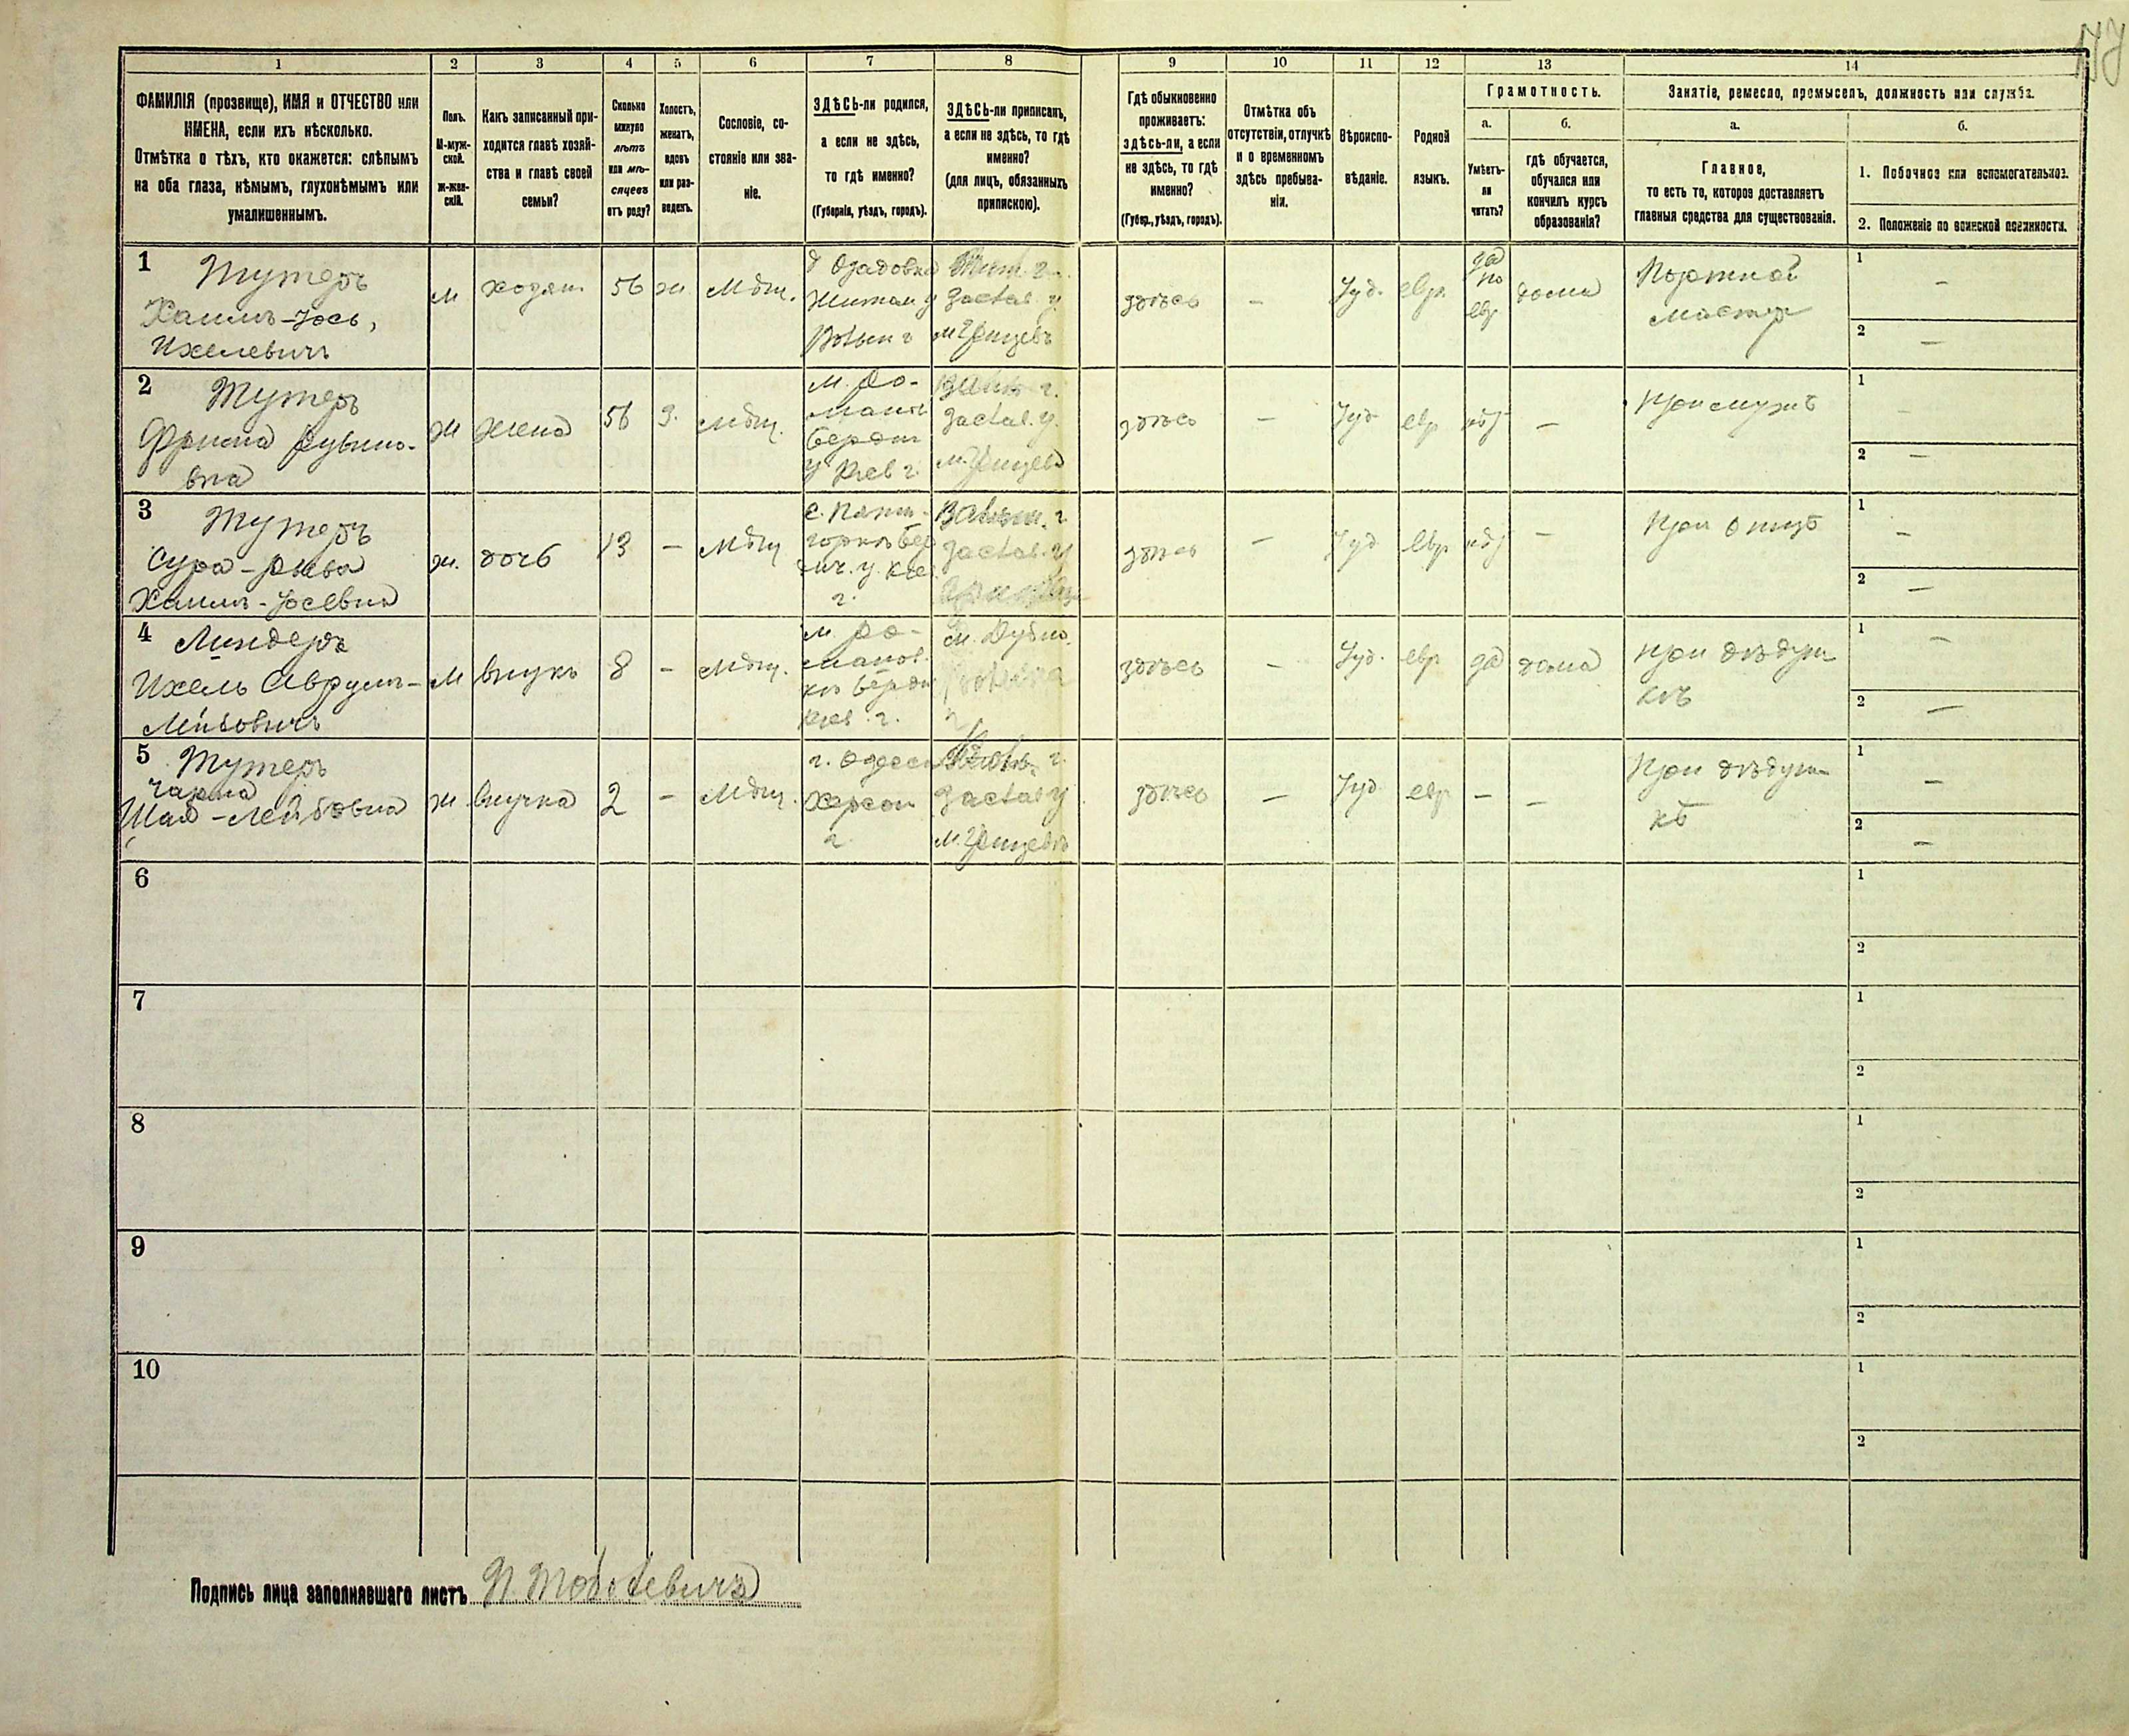 1
2
3
4
5
6
7
8
9
10
11
12
13
14
ФАМИЛІЯ (прозвище), ИМЯ и ОТЧЕСТВО или
ИМЕНА, если ихъ нѣсколько.
Отмѣтка о тѣхъ, кто окажется: слѣпымъ
на оба глаза, нѣмымъ, глухонѣмымъ или
умалишеннымъ.
Полъ.
М-муж-
ской.
ж-жен-
скій.
Какъ записанный при-
ходится главѣ хозяй-
ства и главѣ своей
семьи?
Сколько
минуло
лѣтъ
или мѣ-
сяцевъ
отъ роду?
Холостъ,
женатъ,
вдовъ
или раз-
веденъ.
Сословіе, со-
стояніе или зва-
ніе.
ЗДѢСЬ-ли родился,
а если не здѣсь,
то гдѣ именно?
(Губернія, уѣздъ, городъ).
ЗДѢСЬ-ли приписанъ,
а если не здѣсь, то гдѣ
именно?
(для лицъ, обязанныхъ
припискою).
Гдѣ обыкновенно
проживаетъ:
здѣсь-ли, а если
не здѣсь, то гдѣ
именно?
(Губер., уѣздъ, городъ).
Отмѣтка объ
отсутствіи, отлучкѣ
и о временномъ
здѣсь пребыва-
ніи.
Вѣроиспо-
вѣданіе.
Родной
языкъ.
Грамотность.
а.
б.
Умѣетъ-
ли
читать?
гдѣ обучается,
обучался или
кончилъ курсъ
образованія?
Занятіе, ремесло, промыселъ, должность или служба.
а.
б.
Главное,
то есть то, которое доставляетъ
главныя средства для существованія.
1. Побочное или вспомогательное.
2. Положеніе по воинской повинности.
1
Тутеръ
Хаимъ-Іось,
Ихелевичъ
м
хозяин
56
ж
Мѣщ.
Житом. у
Волын г
Заслав. у.
м Грицевъ
здѣсь
–
Іуд.
евр.
да
по
евр
дома
Портной
мастер
1
–
2
–
2
Тутеръ
Фрима Рувино-
вна
ж
жена
56
З.
мѣщ.
м. Ро-
манов
бердич
у Киев г.
Заслав. у.
м. Грицевъ
здѣсь
–
Іуд
евр
нѣт
–
При мужѣ
1
–
2
–
3
Тутеръ
Сура-Рива
Хаимъ-Іосевна
ж.
дочь
13
–
мѣщ
с. Пяти-
горкъ бер
дич. у. Киев
г.
Волын. г
Заслав. у
здѣсь
–
Іуд
евр
нѣт
–
При отцѣ
1
–
2
–
4
Линдеръ
Ихель Аврумъ-
Лейбовичъ
м
внукъ
8
–
мѣщ.
м Ро-
манов.
къ бердич
Киев. г.
м. Дубно
здѣсь
–
Іуд.
евр
да
дома
При дѣдуш-
кѣ
1
–
2
–
5
Тутеръ
Чарна
Шая-Лейбовна
ж.
внучка
2
–
мѣщ.
г. Одесса
Херсон
г
Заслав у
м. Грицевъ
здѣсь
–
Іуд
евр
–
–
При дѣдуш-
кѣ
1
–
2
–
6
1
2
7
1
2
8
1
2
9
1
2
10
1
2
Подпись лица заполнявшаго листъ